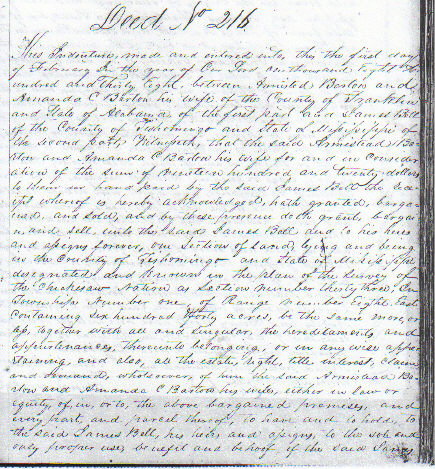 Deed No 216
This Indenture, made and entered into, this the first day
of February In the year of Our Lord one thousand Eight Hu
undred and Thirty Eight, between Armisted Barton and
Amanda C Barton his wife of the County of Franklin
and State of Alabama of the first part and James Bell
of the County of Tishomingo and State of Mississippi of
the second part, Witnesseth, that the said Armistead Ba-
rton and Amanda C Barton his wife for and in consider
ation of the sum of Nineteen hundred and twenty dollars
to them in hand paid by the said James Bell the rec
eipt whereof is hereby acknowledged, hath granted, barga
ined, and sold, and by these presence do the grant, bargai
n, and sell, unto the said James Bell and to his heirs
and assigns forever, one Section of Land, lying and being
in the County of Tishomingo and State of Mississippi
designated and known in the plan of the survey of
the Chickesaw Nation as Section number thirty three, In
Township Number one of Range number Eight East
containing six hundred Forty acres, be the same more or
less, together with all and singular, the hereditaments and
appurtenances, thereunto belonging, or in any wise apper
taining, and also, all the estate, right, title interest, claim
and demand, whatsoever of him the said Armistead Ba-
rton and Amanda C Barton his wife, either in law or
equity, of, in, or to, the above bargained premises, and
every part, and parcel thereof, to have and to hold, to
the said James Bell, his heirs and assigns, to the sole and
only proper use, benefit and behoof of the said James